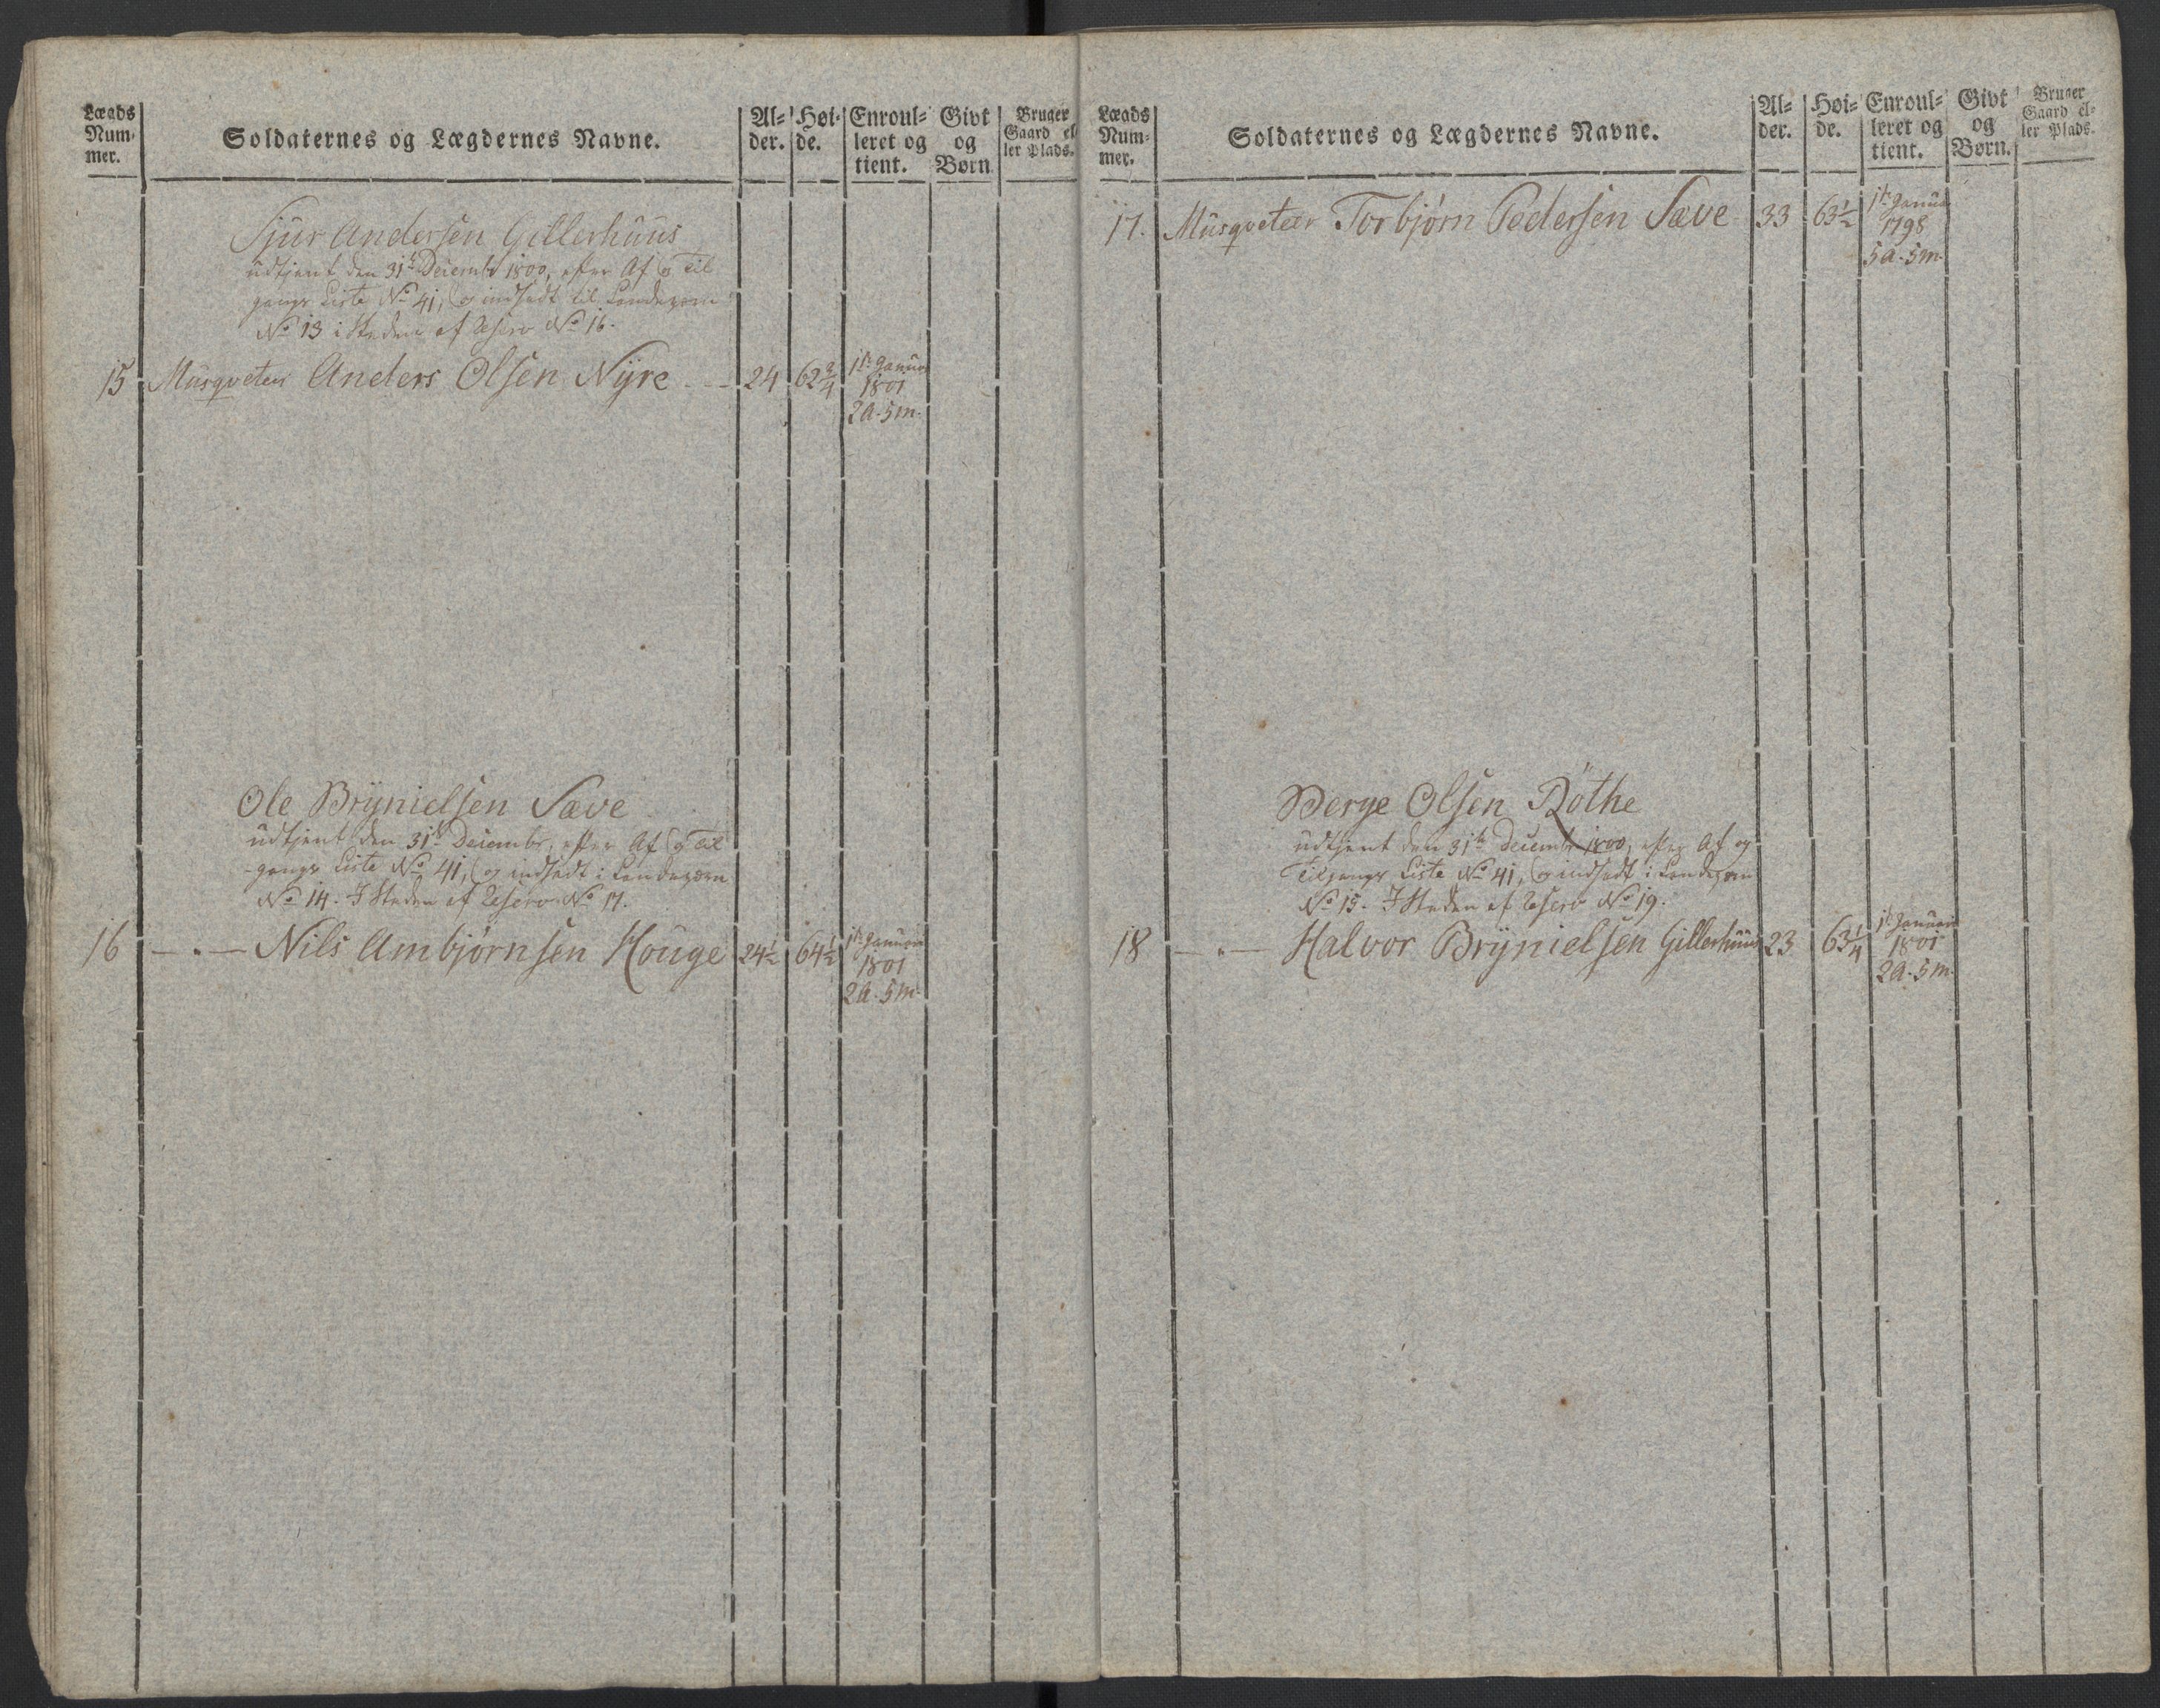 Lægds
Num-
mer.
Soldaternes og Lægdernes Navne.
Al-
der.
Høi-
de.
Enroul-
leret og
tient.
Givt
og
Børn
Bruger
Gaard el
ler Plads.
Sjur Andersen Gillerhuus
udtjent den 31te Decembr 1800, efter Af og Til
gangs Liste No 41, og indsadt til Landeværn
No 13 i Steden af Reserv No 16.
15 Musqveteer Anders Olsen Nyre 24 62 3/4 1te Januar
1801
2a. 5m.
Ole Brynielsen Sæve
udtjent den 31te Decembr, efter Af og Til
gangs Liste No 41, og indsadt i Landeværn
No 14. I Steden af Reserv No 17.
16 —„— Nils Ambjørnsen Houge 24 1/2 64 1/2 1te Januari
1801
2a. 5m.
Lægds
Num-
mer.
Soldaternes og Lægdernes Navne.
Al-
der.
Høi-
de.
Enroul-
leret og
tient.
Givt
og
Børn.
Bruger
Gaard el-
ler Plads.
17. Musqveteer Torbjørn Pedersen Sæve 33 63 1/2 1te Januar
1798
5a. 5m.
Berge Olsen Röthe
udtjent den 31te Decembr 1800, efter Af og
Tilgangs Liste No 41, og indsadt i Landeværn
No 15. I Steden af Reserv No 19.
18 —„— Halvor Brynielsen Gillerhuus 23 63 1/4 1te Januari
1801
2a. 5m.